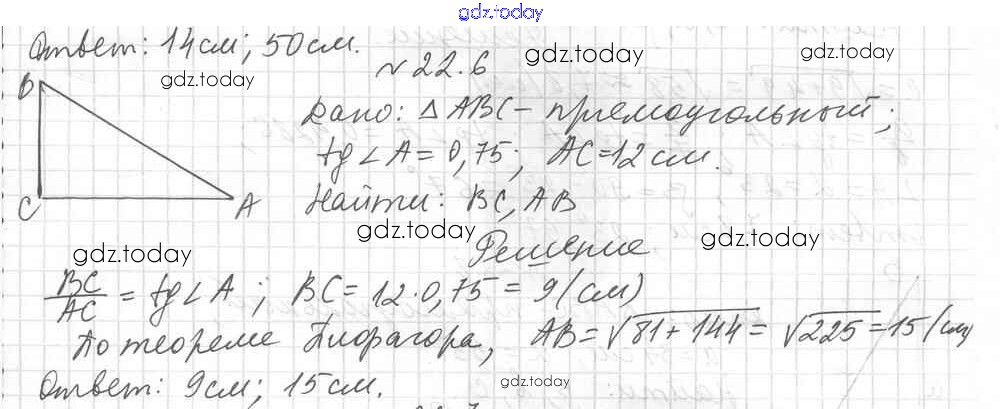 gdz.today
Ответ: 14см; 50см.
gdz.today
gdz.today
gdz.today
N 22.6
B
C
A
Дано: △ABC - прямоугольный;
gdz.today
gdz.today
tg∠A = 0,75; AC = 12 см.
Найти: BC, AB
gdz.today
gdz.today
gdz.today
Решение
BC/AC = tg∠A; BC = 12·0,75 = 9 (см)
По теореме Пифагора, AB = √81+144 = √225 = 15 (см)
Ответ: 9см; 15см.
gdz.today